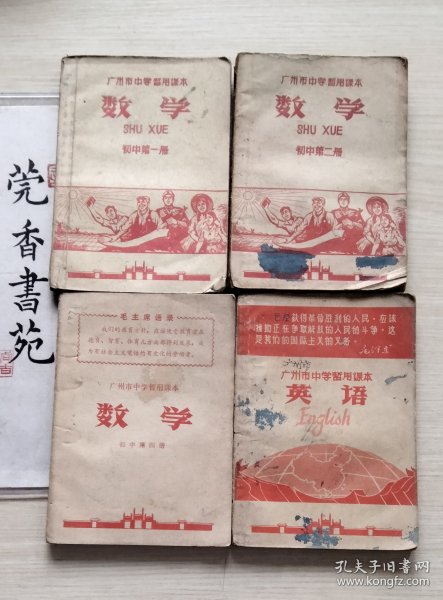 莞香書苑
广州市中学暂用课本
数学
SHU XUE
初中第一册
广州市中学暂用课本
数学
SHU XUE
初中第二册
毛主席语录
我们的教育方针，应该使受教育者在
德育、智育、体育几方面都得到发展，成
为有社会主义觉悟的有文化的劳动者。
广州市中学暂用课本
数学
初中第四册
已经获得革命胜利的人民，应该
援助正在争取解放的人民的斗争，这
是我们的国际主义的义务。
毛泽东
广州市
广州市中学暂用课本
英语
English
孔夫子旧书网
www.kongfz.com